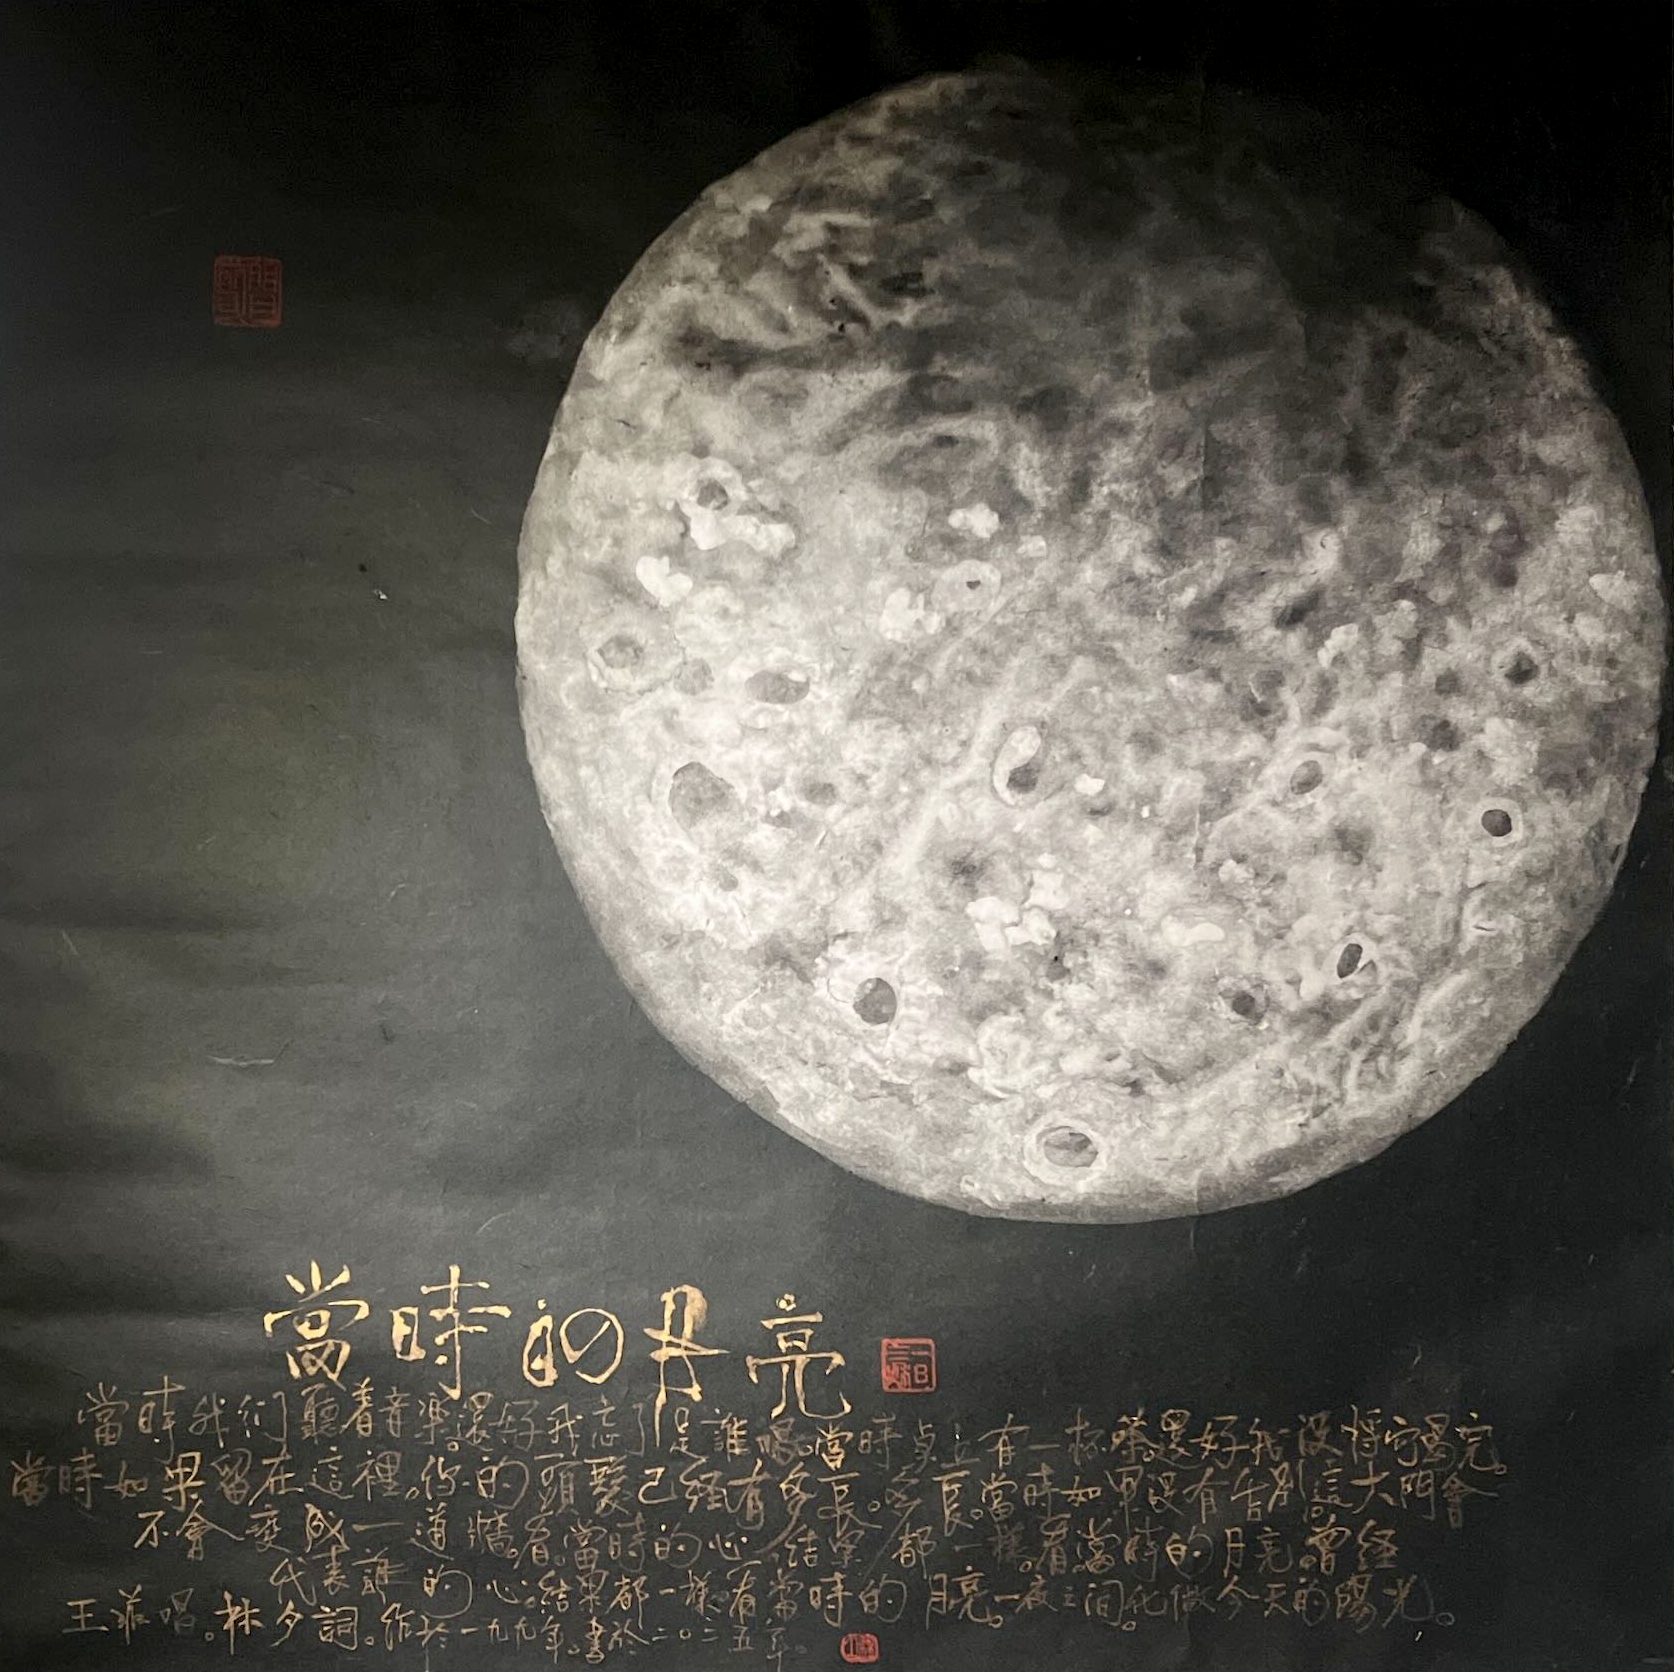 當時的月亮
當時我们聽着音楽。還好我忘了是誰唱。當時桌上有一杯茶。還好我沒將它喝完。
當時如果留在這裡。你的頭髮已経有多長。多長。當時如果没有告别。這大門會
不會変成一道牆。看。當時的心。结果都一様。看當時的月亮。曾経
代表誰的心。結果都一様。看當時的月亮。一夜之间化做今天的陽光。
王菲唱。林夕詞。作於一九九九年。書於二〇二五年。